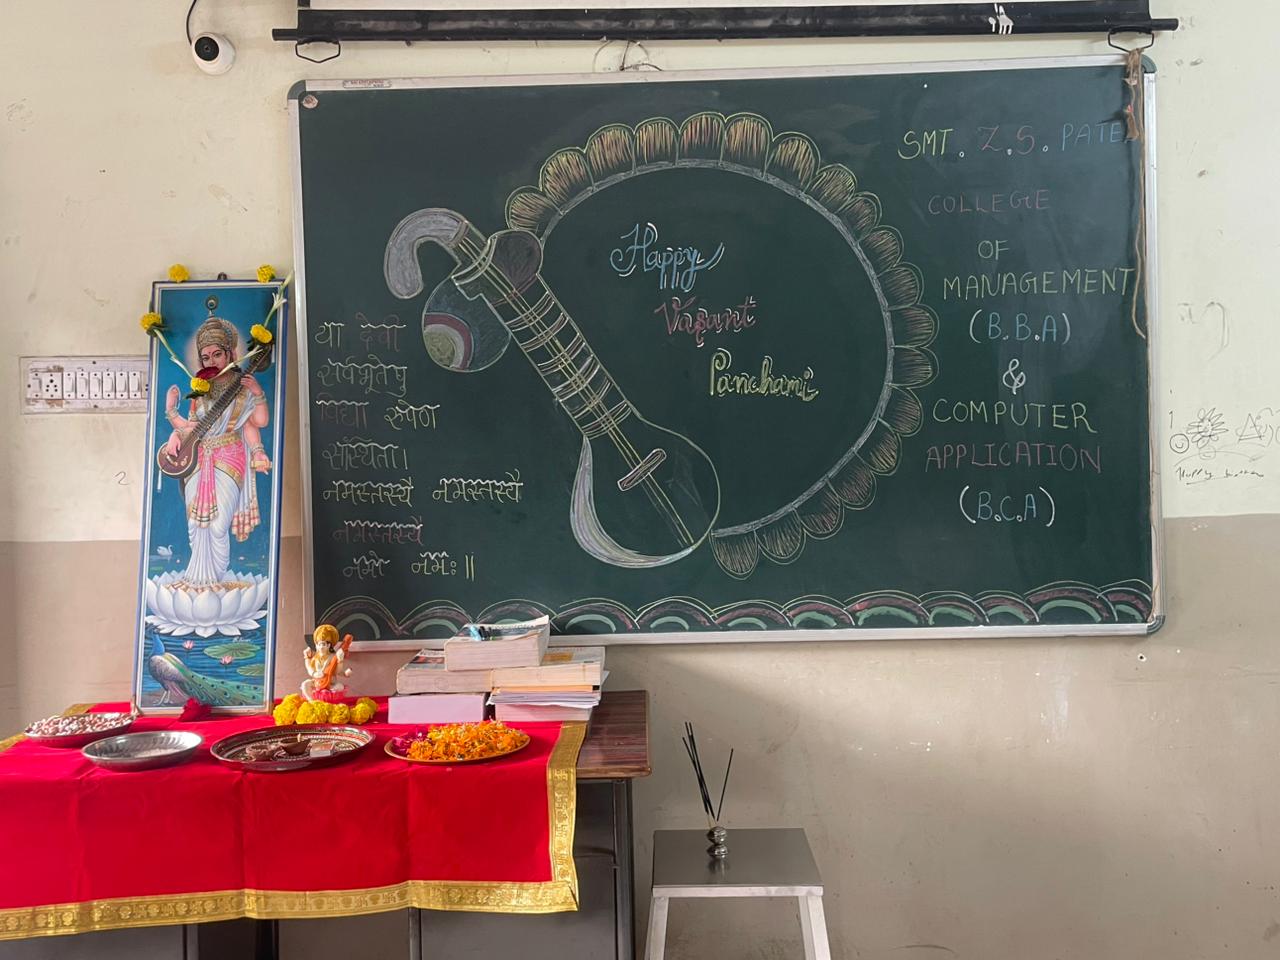 या देवी
सर्वभूतेषु
विद्या रुपेण
संस्थिता।
नमस्तस्यै नमस्तस्यै
नमस्तस्यै
नमो नमः॥
Happy
Vasant
Panchami
SMT. Z.S. PATE
COLLEGE
OF
MANAGEMENT
(B.B.A)
&
COMPUTER
APPLICATION
(B.C.A)
2